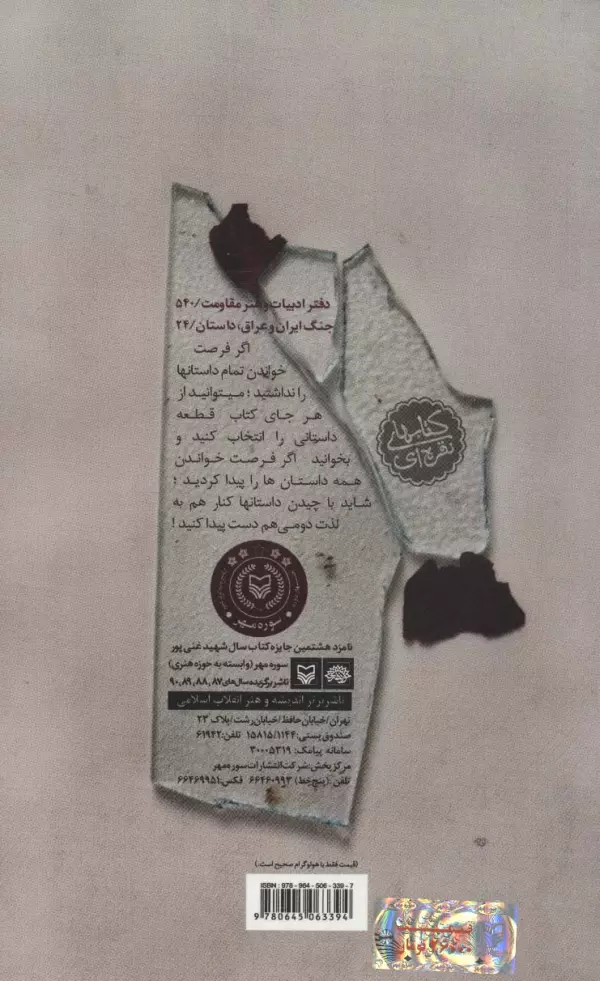 دفتر ادبیات و هنر مقاومت/۵۴۰
جنگ ایران و عراق، داستان/۲۴
اگر فرصت
خواندن تمام داستانها
را نداشتید ؛ میتوانید از
هر جای کتاب قطعه
داستانی را انتخاب کنید و
بخوانید اگر فرصت خواندن
همه داستان ها را پیدا کردید ؛
شاید با چیدن داستانها کنار هم به
لذت دومی هم دست پیدا کنید !
کتابهای
نقره‌ای
سوره مهر
نامزد هشتمین جایزه کتاب سال شهید غنی پور
سوره مهر (وابسته به حوزه هنری)
ناشر برگزیده سال‌های ۸۷، ۸۸، ۸۹، ۹۰
ناشر برتر اندیشه و هنر انقلاب اسلامی
تهران/خیابان حافظ/خیابان رشت/پلاک ۲۳
صندوق پستی: ۱۵۸۱۵/۱۱۴۴ تلفن: ۶۱۹۴۲
سامانه پیامک: ۳۰۰۰۵۳۱۹
مرکز پخش: شرکت انتشارات سوره مهر
تلفن: (پنج خط) ۶۶۴۶۰۹۹۳ فکس: ۶۶۴۶۹۹۵۱
(قیمت فقط با هولوگرام صحیح است.)
ISBN : 978 - 964 - 506 - 339 - 7
9 780645 063394